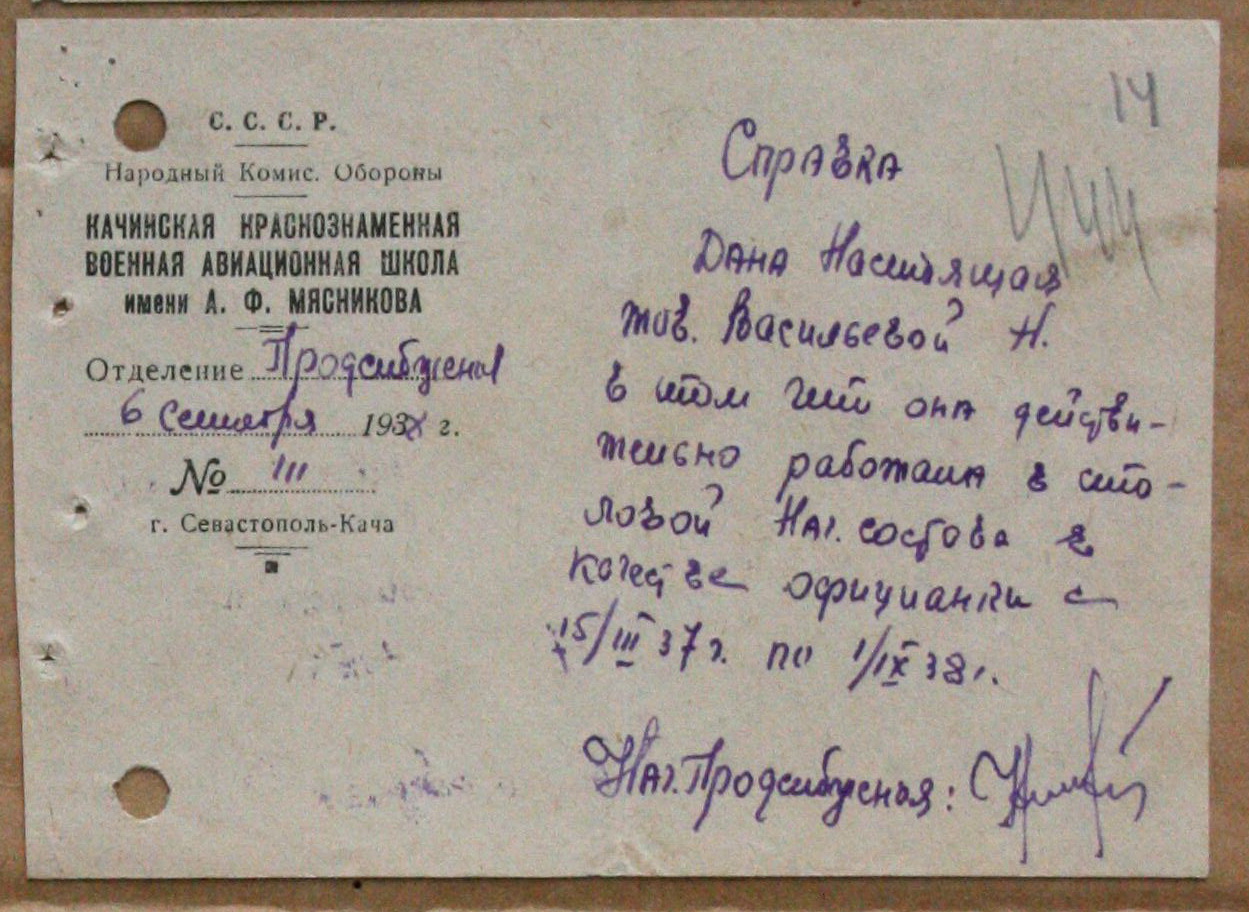 С. С. С. Р.
Народный Комис. Обороны
КАЧИНСКАЯ КРАСНОЗНАМЕННАЯ
ВОЕННАЯ АВИАЦИОННАЯ ШКОЛА
имени А. Ф. МЯСНИКОВА
Отделение Продснабжения
6 сентября 1938 г.
№ 111
г. Севастополь-Кача
14
Справка
Дана Настоящая
тов. Васильевой Н.
в том что она действи-
тельно работала в сто-
ловой Нач. состава в
качестве официантки с
15/III 37 г. по 1/IX 38 г.
Нач. Продснабжения: